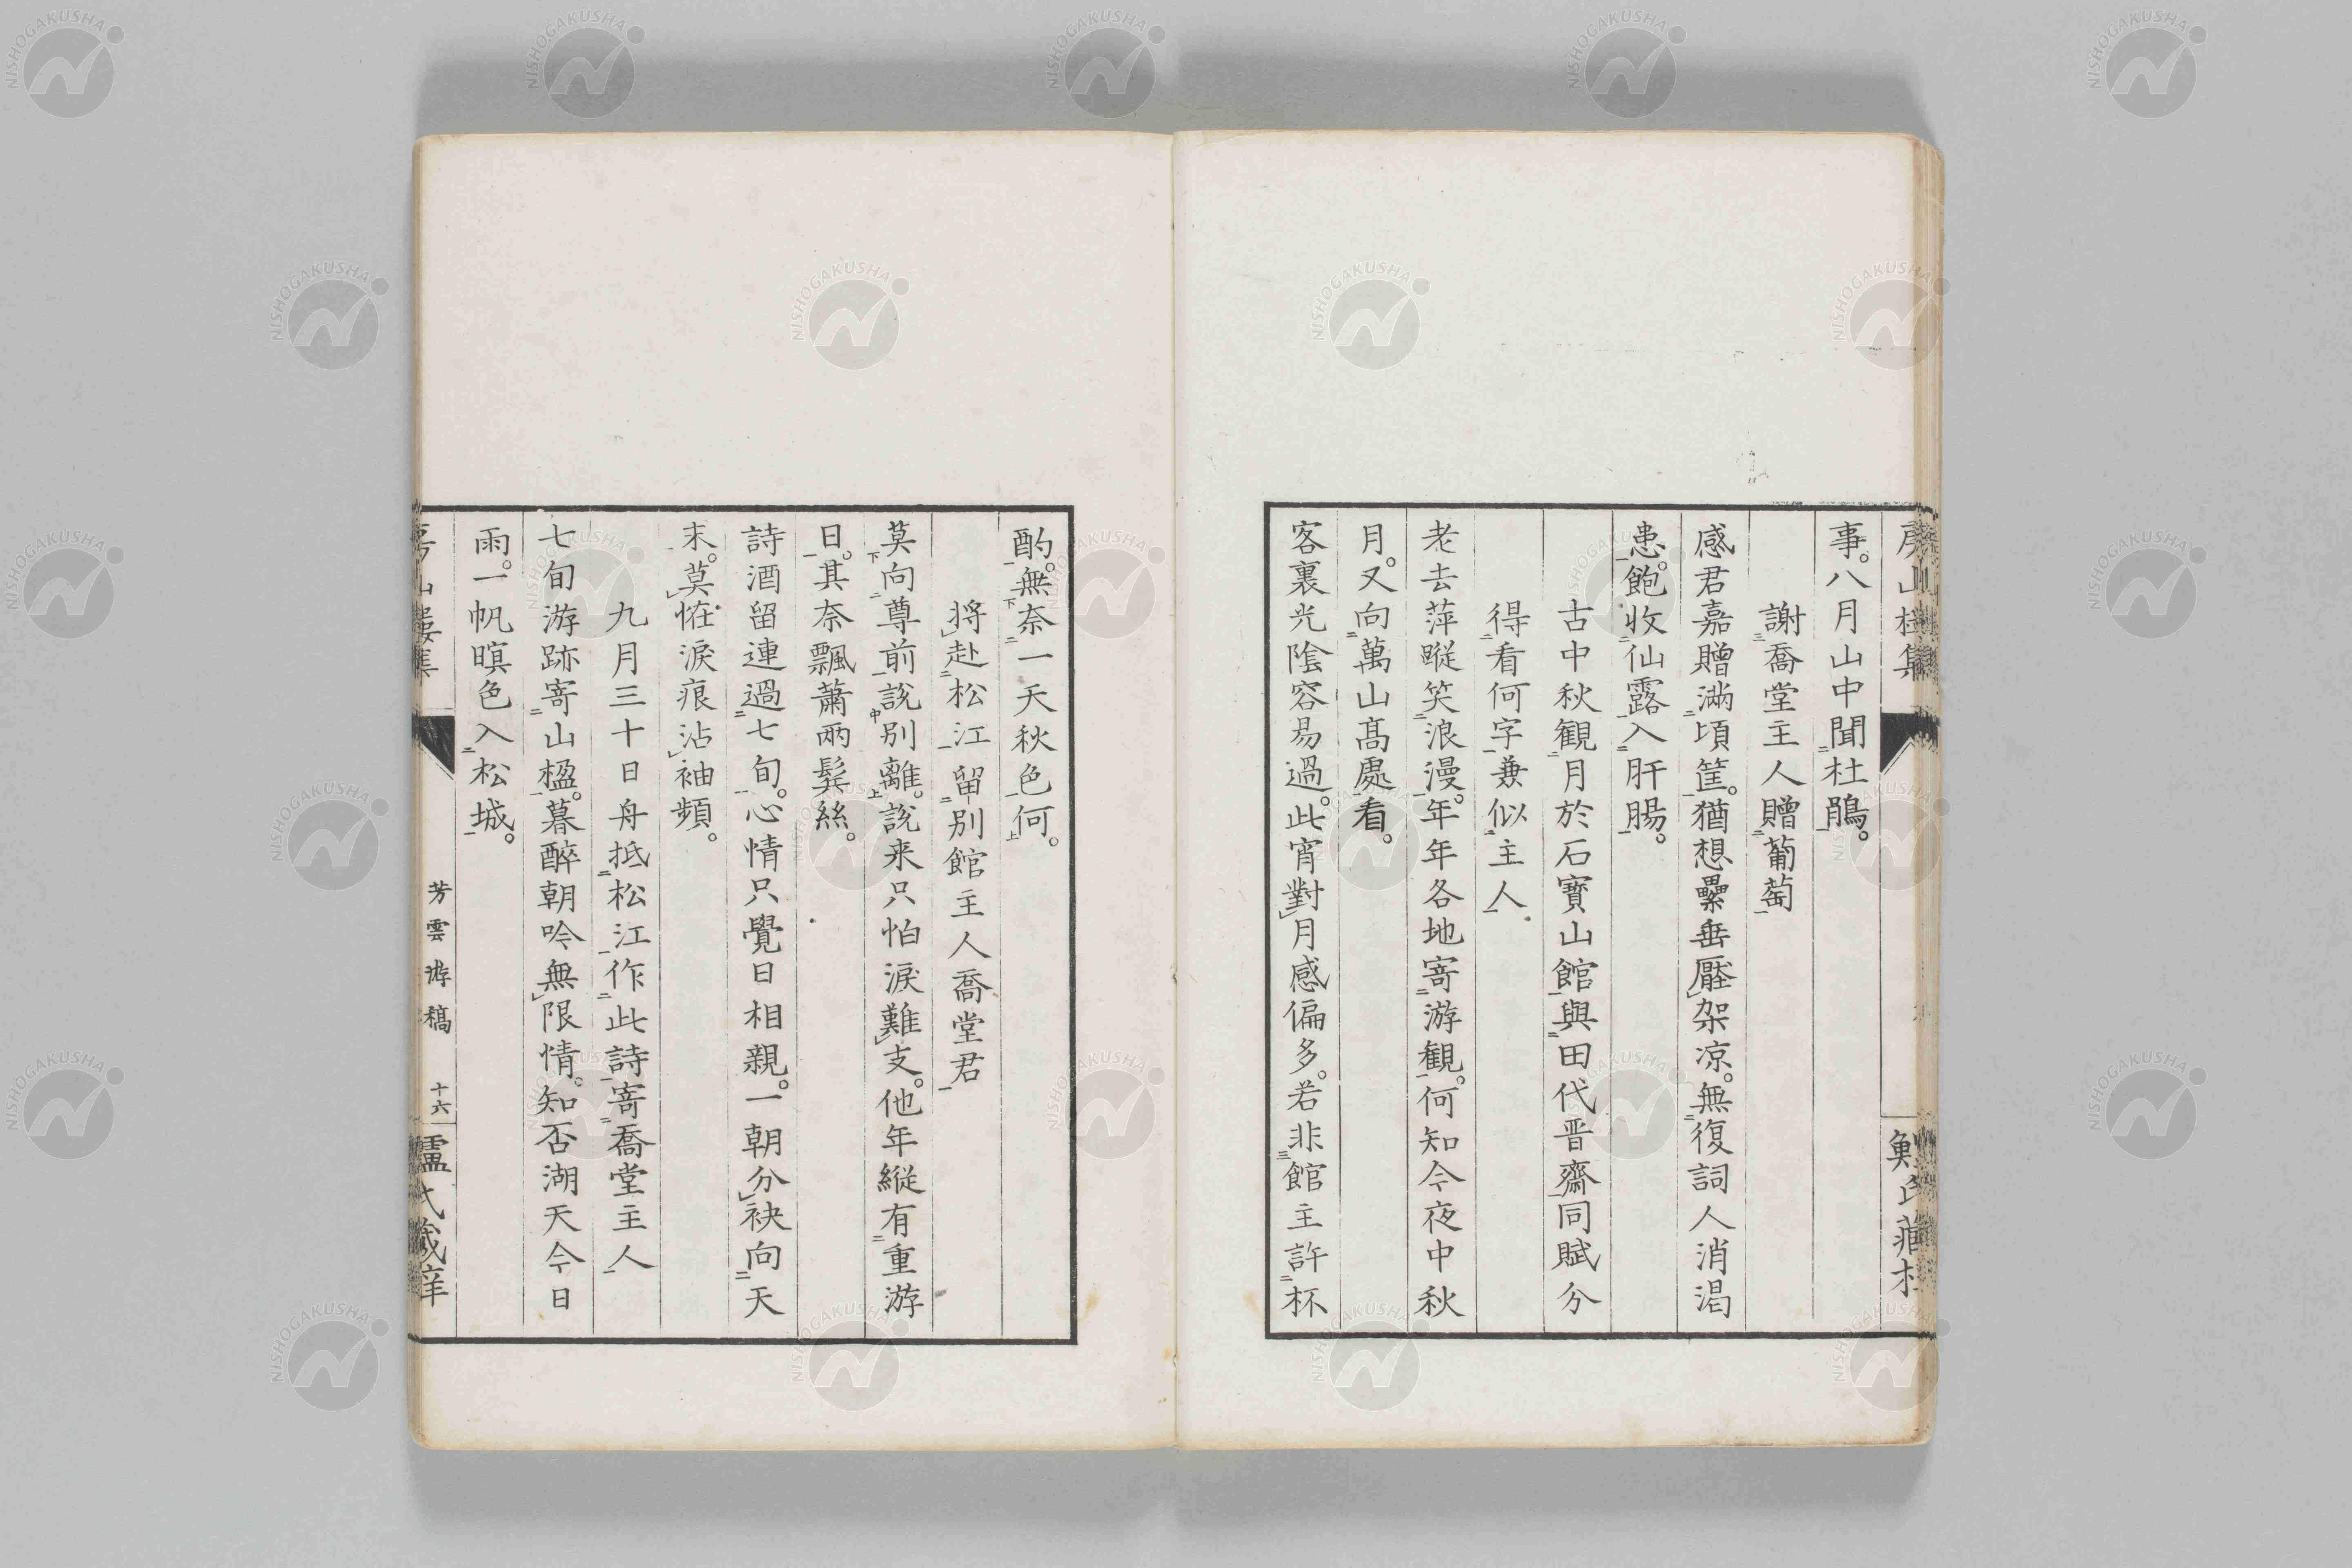 事。八月山中聞杜鵑。
謝喬堂主人贈葡萄
感君嘉贈滿頃筐。猶想纍垂壓架凉。無復詞人消渴
患。飽收仙露入肝腸。
古中秋観月於石寶山館與田代晋齋同賦分
得看何字兼似主人
老去萍蹤笑浪漫。年年各地寄游観。何知今夜中秋
月。又向萬山髙處看。
客裏光陰容易過。此宵對月感偏多。若非館主許杯
酌。無奈一天秋色何。
将赴松江留別館主人喬堂君
莫向尊前說別離。說来只怕淚難支。他年縦有重游
日。其奈飄蕭兩髩絲。
詩酒留連過七旬。心情只覺日相親。一朝分袂向天
末。莫恠淚痕沾袖頻。
九月三十日舟抵松江作此詩寄喬堂主人
七旬游跡寄山楹。暮醉朝吟無限情。知否湖天今日
雨。一帆暝色入松城。
芳雲游稿
十六
NISHOGAKUSHA